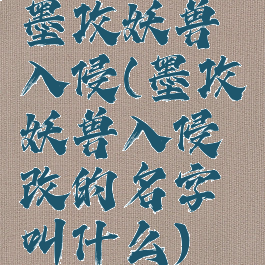 墨攻妖兽
入侵(墨攻
妖兽入侵
改的名字
叫什么)